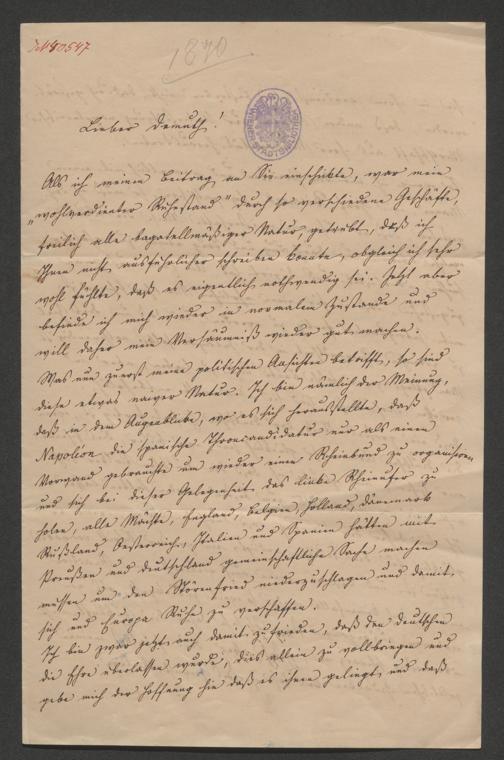 JN 80547
1870
WIENER STADTBIBLIOTHEK
Lieber Demuth!
Als ich meinen Beitrag an Sie einschickte, war mein
„wohlverdienter Ruhestand" durch so verschiedene Geschäfte,
freilich alle bagatellmäßiger Natur, getrübt, daß ich
Ihnen nicht ausführlicher schreiben konnte, obgleich ich sehr
wohl fühlte, daß es eigentlich nothwendig sei. Jetzt aber
befinde ich mich wieder in normalem Zustande und
will daher mein Versäumniß wieder gut machen.
Was nun zuerst meine politischen Ansichten betrifft, so sind
diese etwas naiver Natur. Ich bin nämlich der Meinung,
daß in dem Augenblicke, wo es sich herausstellte, daß
Napoleon die spanische Throncandidatur nur als einen
Vorwand gebrauchte um wieder einen Rheinbund zu organisiren
und sich bei dieser Gelegenheit das linke Rheinufer zu
holen, alle Mächte, England, Belgien, Holland, Dänemark
Rußland, Oesterreich, Italien und Spanien hätten mit
Preußen und Deutschland gemeinschaftliche Sache machen
müssen um den Störenfried niederzuschlagen und damit
sich und Europa Ruhe zu verschaffen.
Ich bin zwar jetzt auch damit zufrieden, daß den Deutschen
die Ehre überlassen wurde, dies allein zu vollbringen und
gebe mich der Hoffnung hin daß es ihnen gelingt, und daß